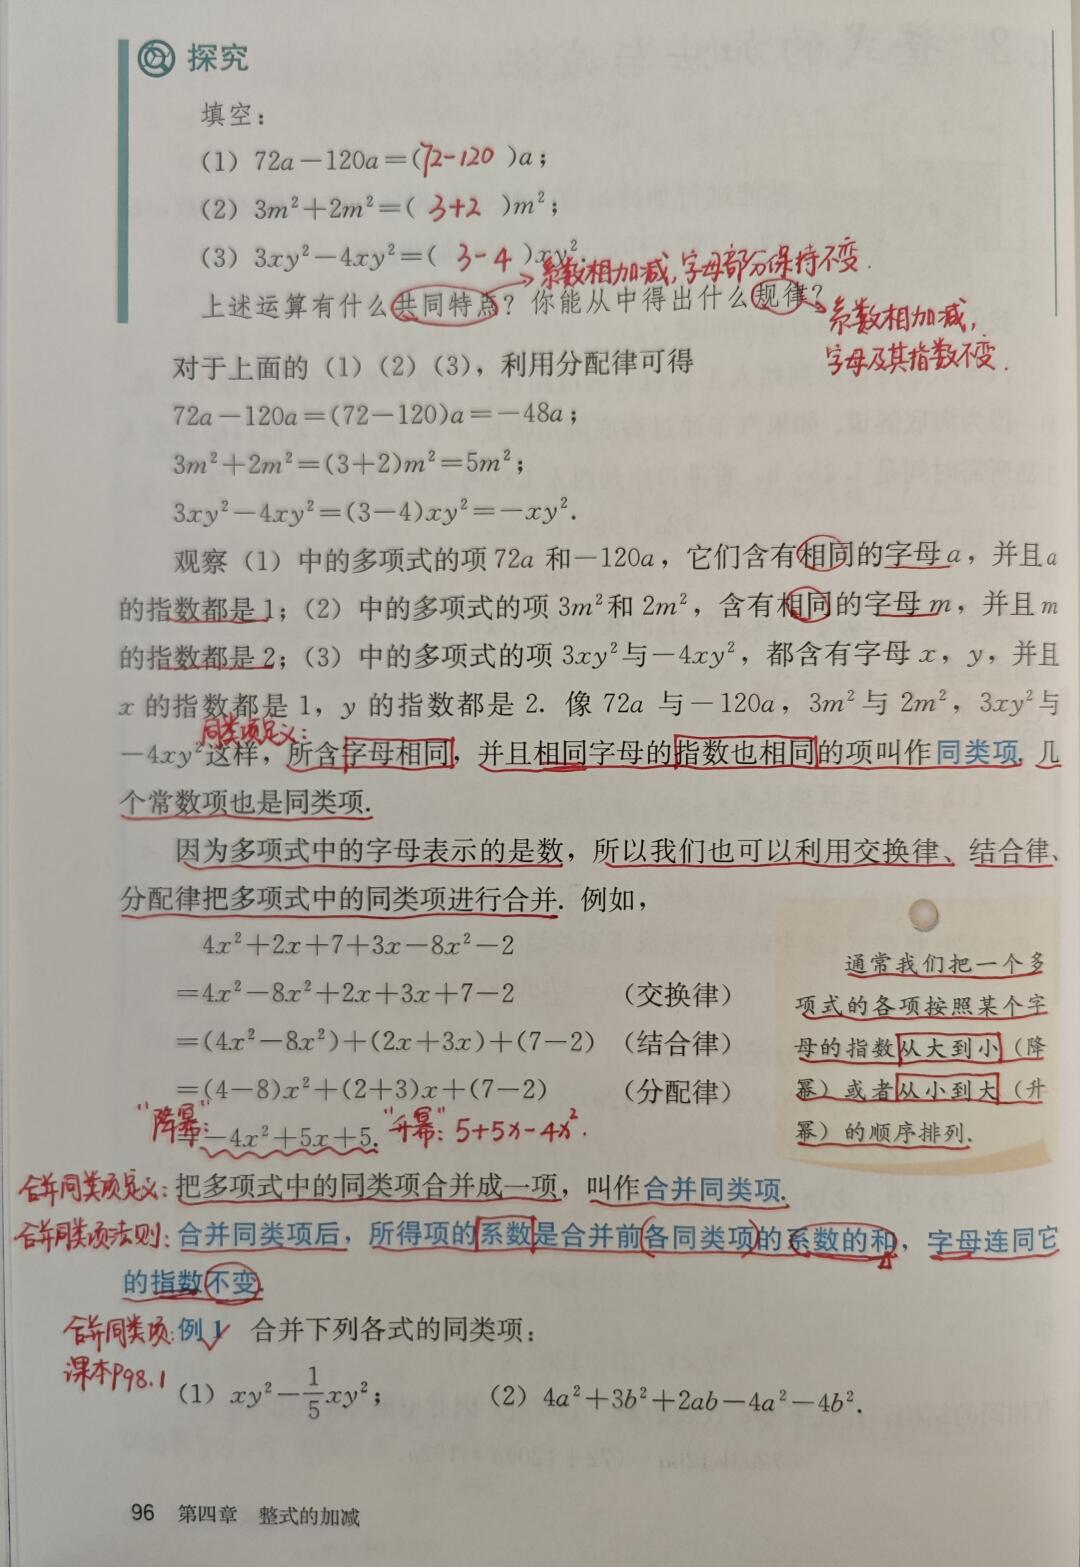 探究
填空：
（1）72a－120a＝(72-120)a；
（2）3m²＋2m²＝(3+2)m²；
（3）3xy²－4xy²＝(3-4)xy².
系数相加减，字母部分保持不变.
上述运算有什么共同特点？你能从中得出什么规律？
系数相加减，
字母及其指数不变.
对于上面的（1）（2）（3），利用分配律可得
72a－120a＝(72－120)a＝－48a；
3m²＋2m²＝(3＋2)m²＝5m²；
3xy²－4xy²＝(3－4)xy²＝－xy².
观察（1）中的多项式的项72a和－120a，它们含有相同的字母a，并且a
的指数都是1；（2）中的多项式的项3m²和2m²，含有相同的字母m，并且m
的指数都是2；（3）中的多项式的项3xy²与－4xy²，都含有字母x，y，并且
x的指数都是1，y的指数都是2. 像72a与－120a，3m²与2m²，3xy²与
同类项定义：
－4xy²这样，所含字母相同，并且相同字母的指数也相同的项叫作同类项. 几
个常数项也是同类项.
因为多项式中的字母表示的是数，所以我们也可以利用交换律、结合律、
分配律把多项式中的同类项进行合并. 例如，
4x²＋2x＋7＋3x－8x²－2
＝4x²－8x²＋2x＋3x＋7－2 （交换律）
＝(4x²－8x²)＋(2x＋3x)＋(7－2) （结合律）
＝(4－8)x²＋(2＋3)x＋(7－2) （分配律）
"降幂"：
＝－4x²＋5x＋5. "升幂"：5+5x-4x².
通常我们把一个多
项式的各项按照某个字
母的指数从大到小（降
幂）或者从小到大（升
幂）的顺序排列.
合并同类项定义：把多项式中的同类项合并成一项，叫作合并同类项.
合并同类项法则：合并同类项后，所得项的系数是合并前各同类项的系数的和，字母连同它
的指数不变.
合并同类项：例1 合并下列各式的同类项：
课本P98.1
（1）xy²－1/5xy²； （2）4a²＋3b²＋2ab－4a²－4b².
96 第四章 整式的加减